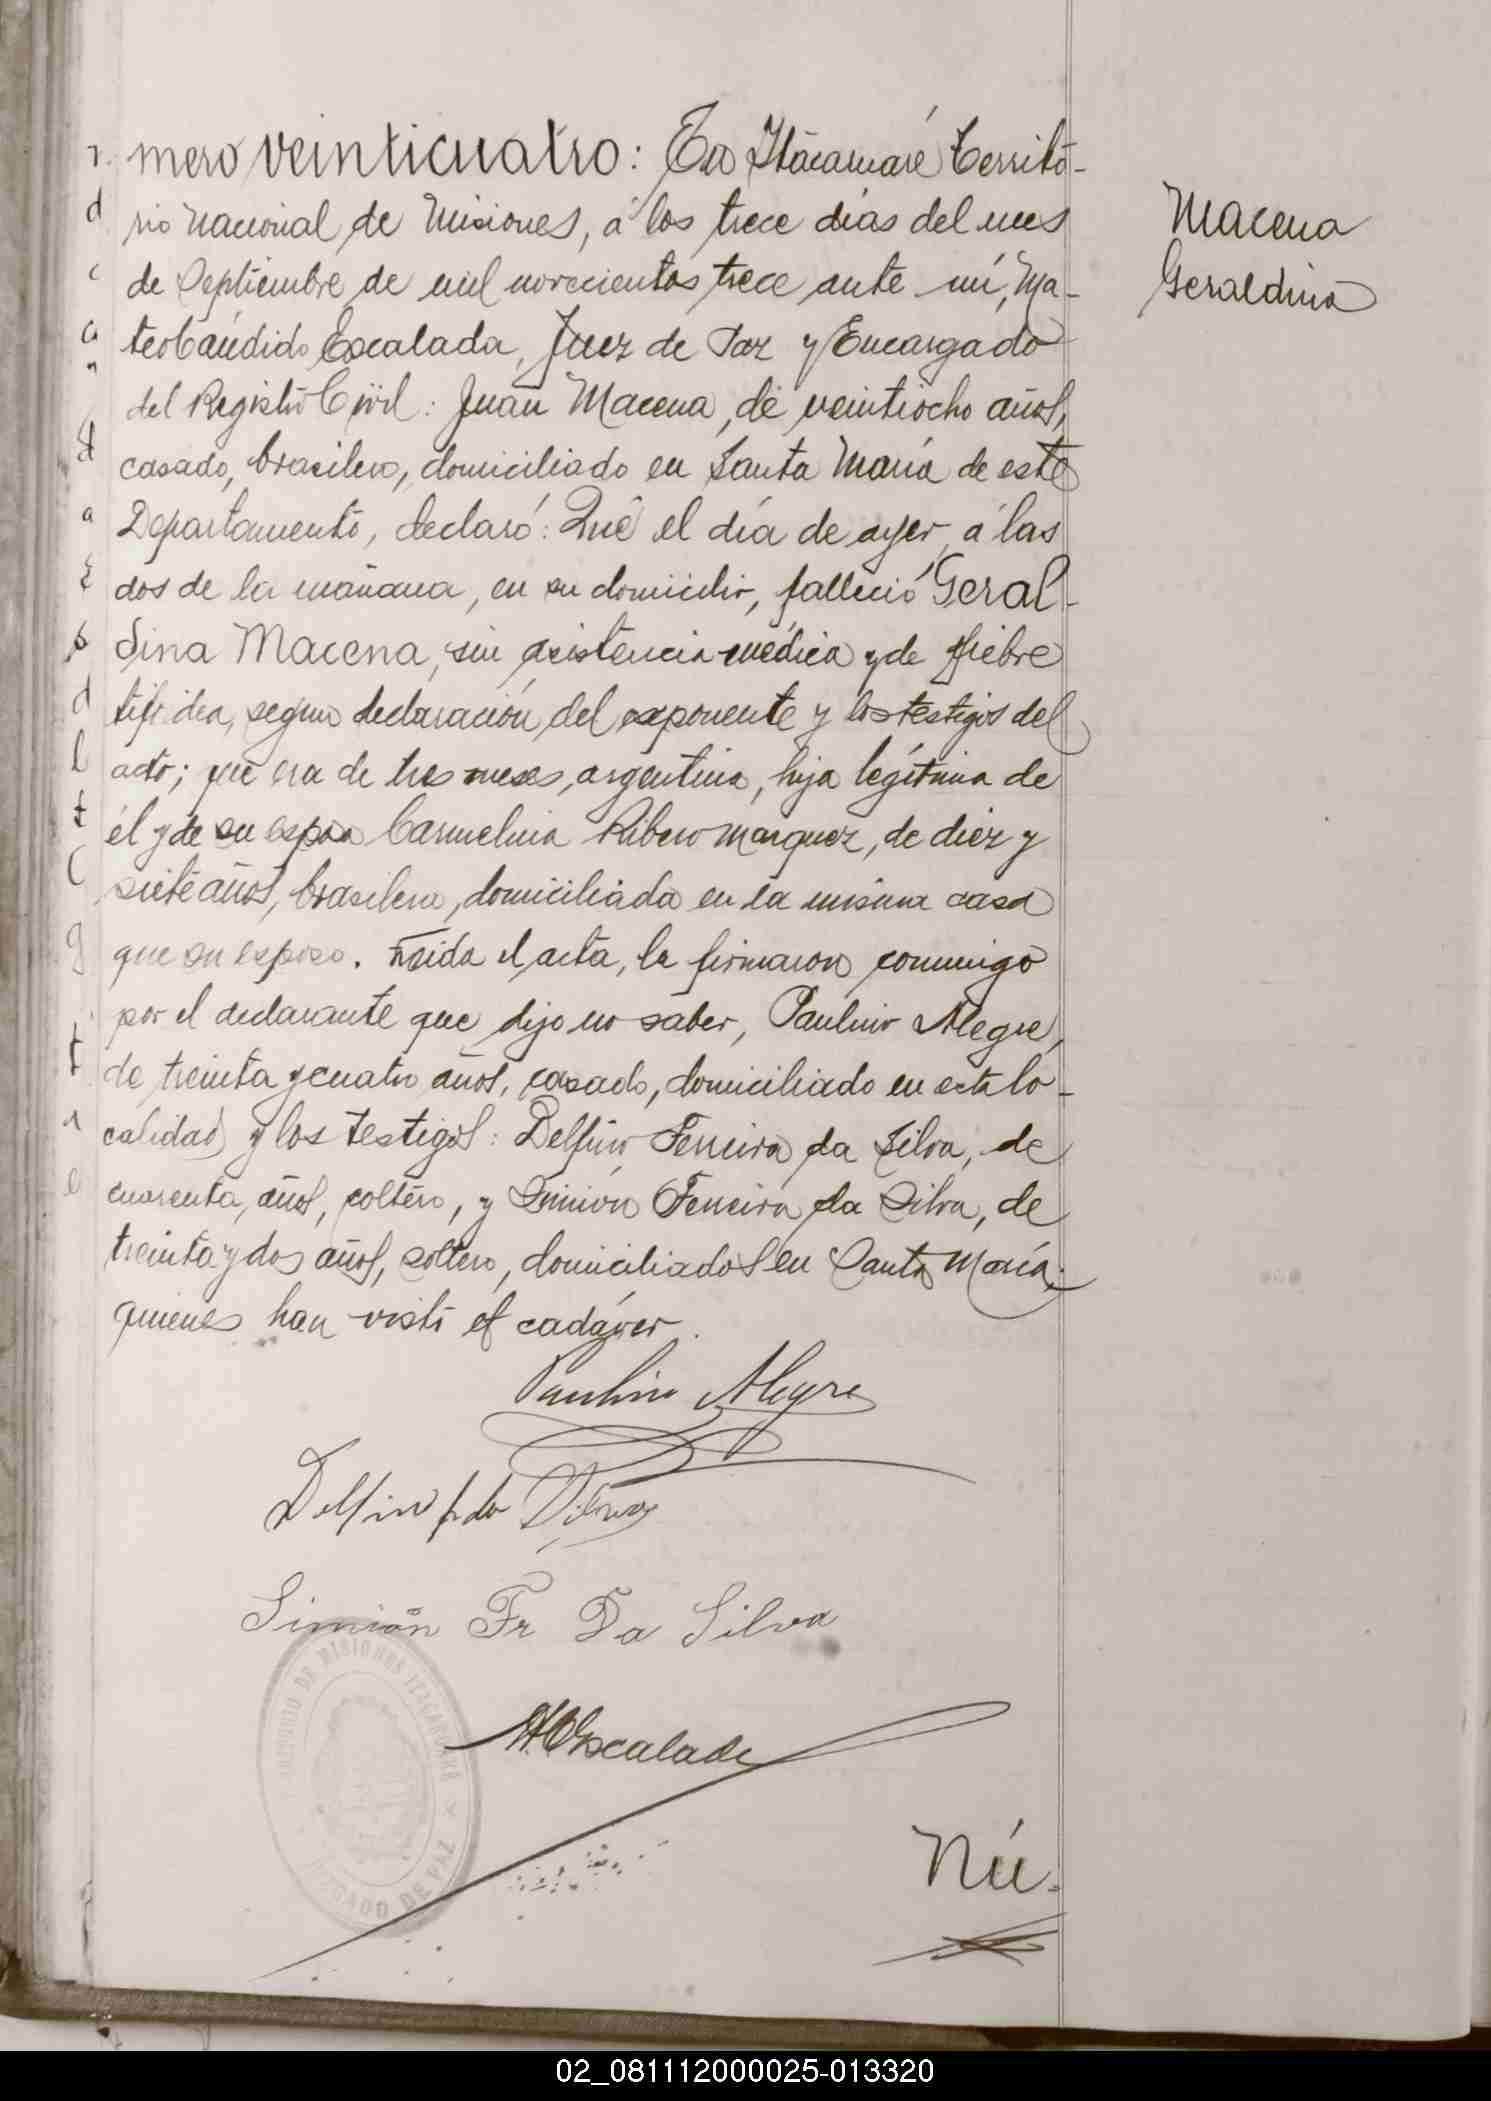 mero veinticuatro: En Itacaruaré Territo-
rio Nacional de Misiones, á los trece días del mes
de Septiembre de mil novecientos trece ante mí, Ma-
teo Cándido Escalada, Juez de Paz y Encargado
del Registro Civil: Juan Macena, de veintiocho años,
casado, brasilero, domiciliado en Santa María de este
Departamento, declaró: Que el día de ayer, á las
dos de la mañana, en su domicilio, falleció Geral-
dina Macena, sin asistencia médica y de fiebre
tifoidea, segun declaración del exponente y los testigos del
acto; que era de tres meses, argentina, hija legítima de
él y de su esposa Carmelina Ribero Marquez, de diez y
siete años, brasilera, domiciliada en la misma casa
que su esposo. Leida el acta, la firmaron conmigo
por el declarante que dijo no saber, Paulino Alegre,
de treinta y cuatro años, casado, domiciliado en esta lo-
calidad y los testigos: Delfino Ferreira da Silva, de
cuarenta, años, soltero, y Simión Ferreira da Silva, de
treinta y dos años, soltero, domiciliados en Santa María;
quienes han visto el cadáver.
Macena
Geraldina
Paulino Alegre
Delfino f. da Silva
Simión Fr Da Silva
M. C. Escalada
JUZGADO DE PAZ
Nú-
02_081112000025-013320